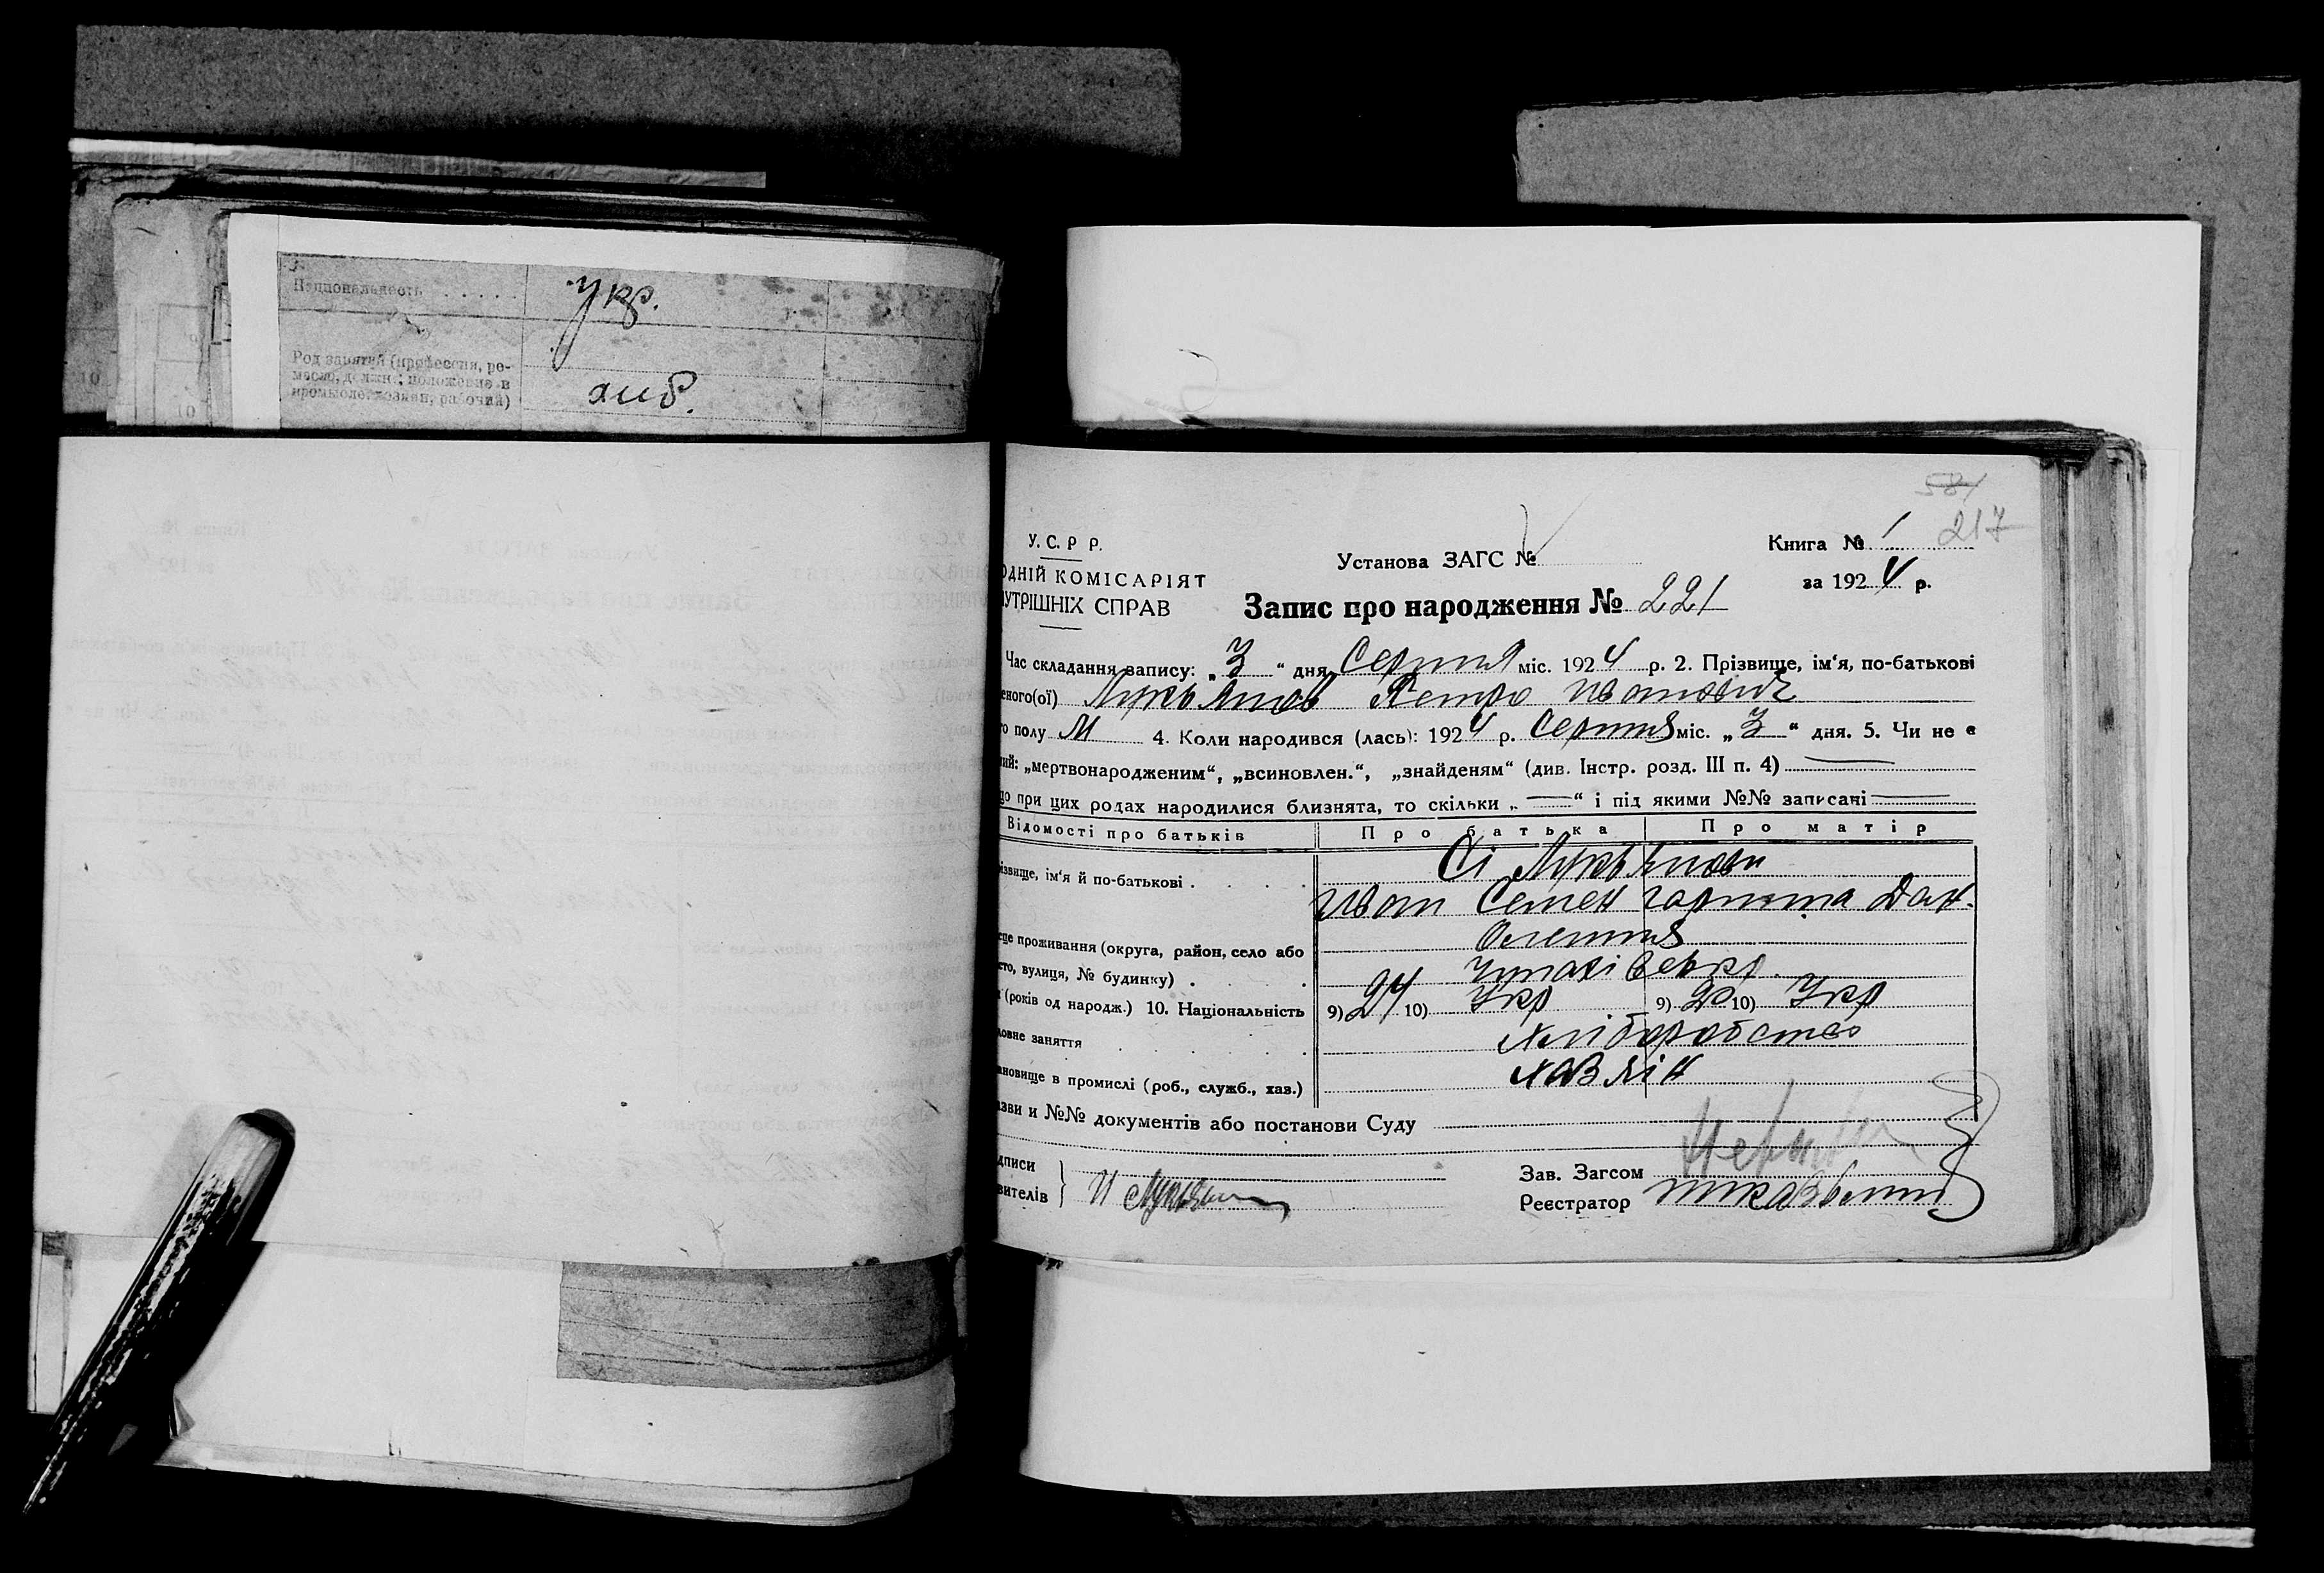 Национальность . . . . . укр.
Род занятий (профессия, ре-
месло, должн.; положение в
промысле: хозяин, рабочий)
хліб.
581
217
У.С.Р Р.
ОДНІЙ КОМІСАРІЯТ
УТРІШНІХ СПРАВ
Установа ЗАГС №
Книга № 1
за 1924 р.
Запис про народження № 221
Час складання запису: „3“ дня Серпня міс. 1924 р. 2. Прізвище, ім‘я, по-батькові
еного(ої) Лукьянов Петро Иванович
о полу М 4. Коли народився (лась): 1924 р. Серпня міс. „3“ дня. 5. Чи не є
ий: „мертвонародженим“, „всиновлен.“, „знайденям“ (див. Інстр. розд. III п. 4) —
що при цих родах народилися близнята, то скільки „—“ і під якими №№ записані —
Відомості про батьків Про батька Про матір
ізвище, ім‘я й по-батькові . . . . Сі Лукьянови
Иван Семен Дан.
сце проживання (округа, район, село або
сто, вулиця, № будинку) . . .
(років од народж.) 10. Національність 9) 24 10) Укр 9) 20 10) Укр
овне заняття . . . . . Хліборобство
ановище в промислі (роб., служб., хав.) хавяін
азви и №№ документів або постанови Суду
дписи
вителів } И Лукьян
Зав. Загсом
Реєстратор